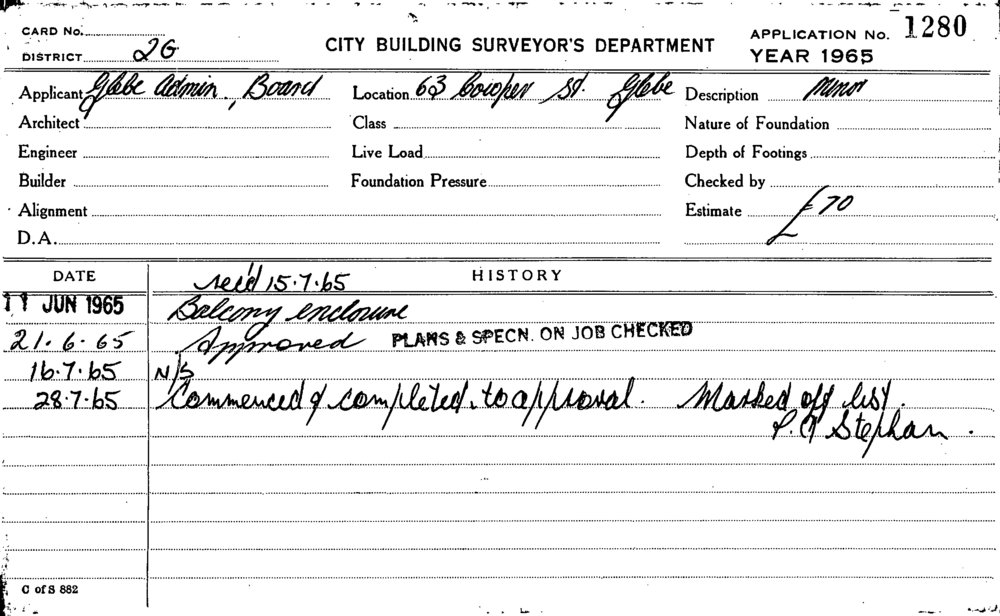 CARD No.
DISTRICT 2G
CITY BUILDING SURVEYOR'S DEPARTMENT
APPLICATION No. 1280
YEAR 1965
Applicant Glebe Admin. Board
Location 63 Cowper St. Glebe
Description Minor
Architect
Class
Nature of Foundation
Engineer
Live Load
Depth of Footings
Builder
Foundation Pressure
Checked by
Alignment
Estimate £70
D.A.
DATE
HISTORY
rec'd 15.7.65
11 JUN 1965 Balcony enclosure
21.6.65 Approved PLANS & SPECN. ON JOB CHECKED
16.7.65 N/S
28.7.65 Commenced & completed to approval. Marked off list.
Stephan.
C of S 882